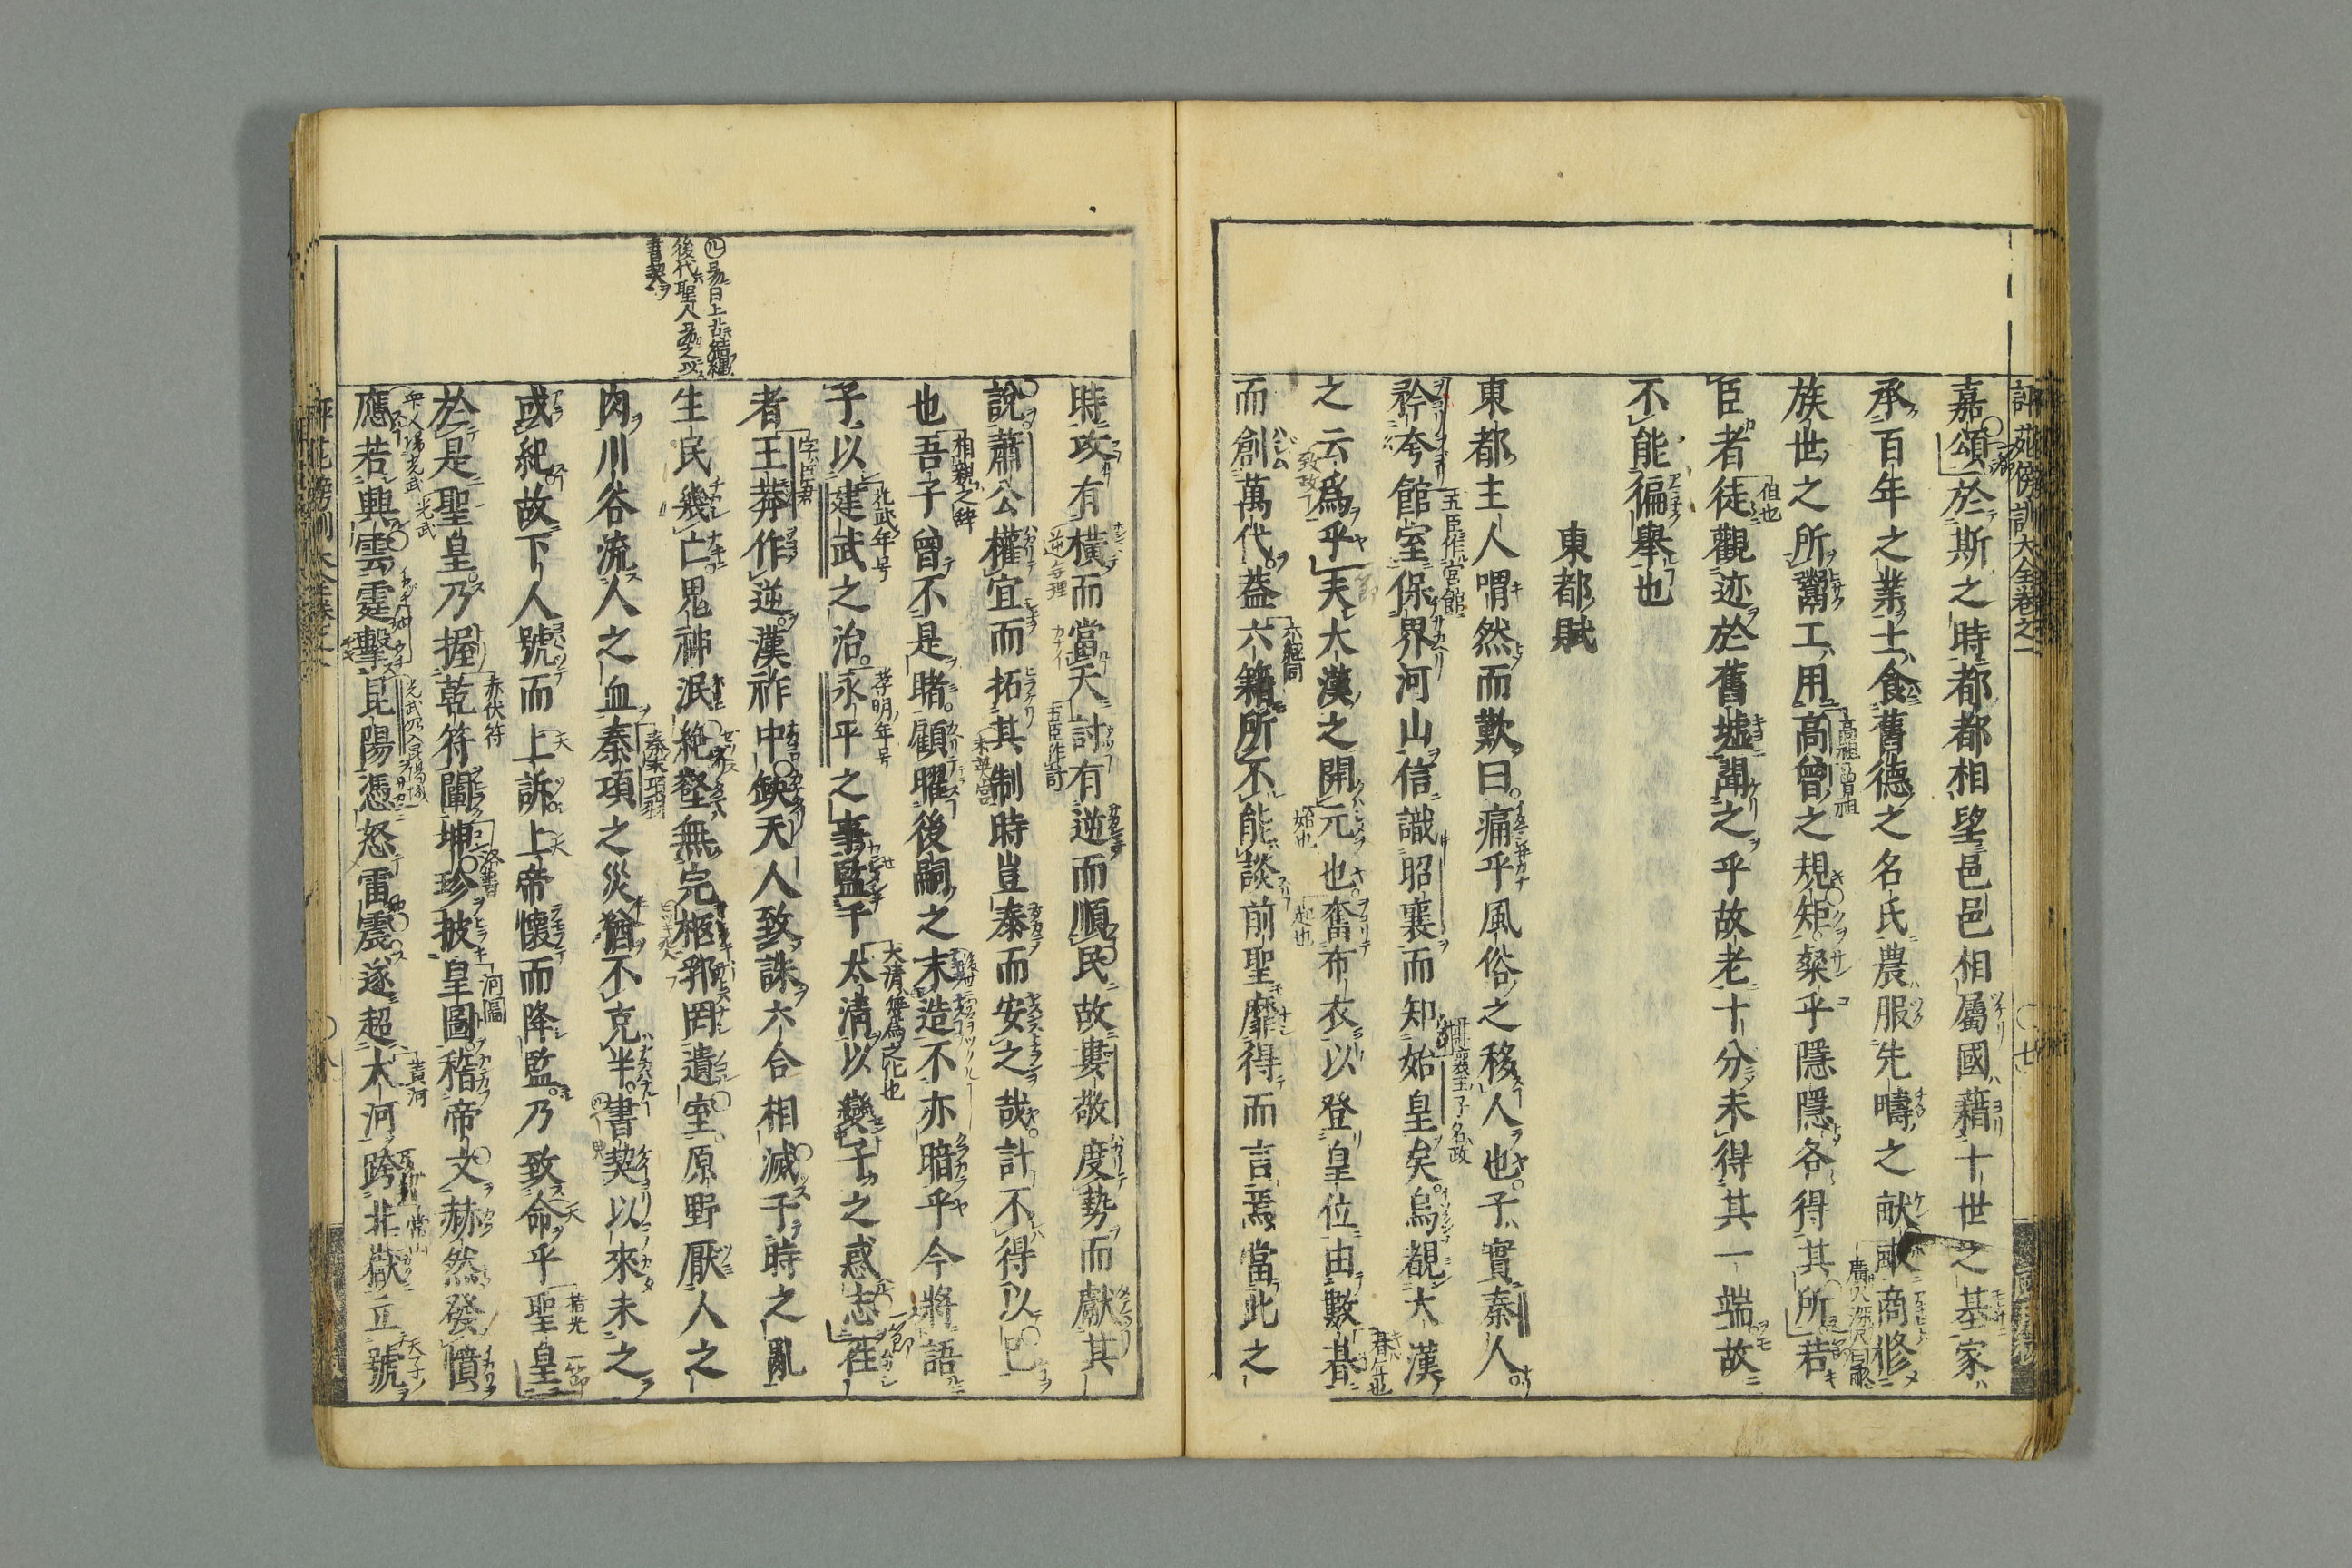 嘉頌於斯之時都都相望邑邑相屬國藉十世之基家
承百年之業士食舊德之名氏農服先疇之畎畝商修
族世之所鬻工用高曾之規矩粲乎隱隱各得其所若
臣者徒觀迹於舊墟聞之乎故老十分未得其一端故
不能徧舉也
東都賦
東都主人喟然而歎曰痛乎風俗之移人也子實秦人
矜夸館室保界河山信識昭襄而知始皇矣烏覩大漢
之云爲乎夫大漢之開元也奮布衣以登皇位由數朞
而創萬代葢六籍所不能談前聖靡得而言焉當此之
時攻有橫而當天討有逆而順民故婁敬度勢而獻其
說蕭公權宜而拓其制時豈泰而安之哉計不得以已
也吾子曾不是睹顧曜後嗣之末造不亦暗乎今將語
子以建武之治永平之事監于太清以變子之惑志在
者王莽作逆漢祚中缺天人致誅六合相滅于時之亂
生民幾亡鬼神泯絕壑無完柩郛罔遺室原野厭人之
肉川谷流人之血秦項之災猶不克半書契以來未之
或紀故下人號而上訴上帝懷而降監乃致命乎聖皇
於是聖皇乃握乾符闡坤珍披皇圖稽帝文赫然發憤
應若興雲霆擊昆陽憑怒雷震遂超大河跨北嶽立號
易曰上古結繩
後代聖人易之以
書契